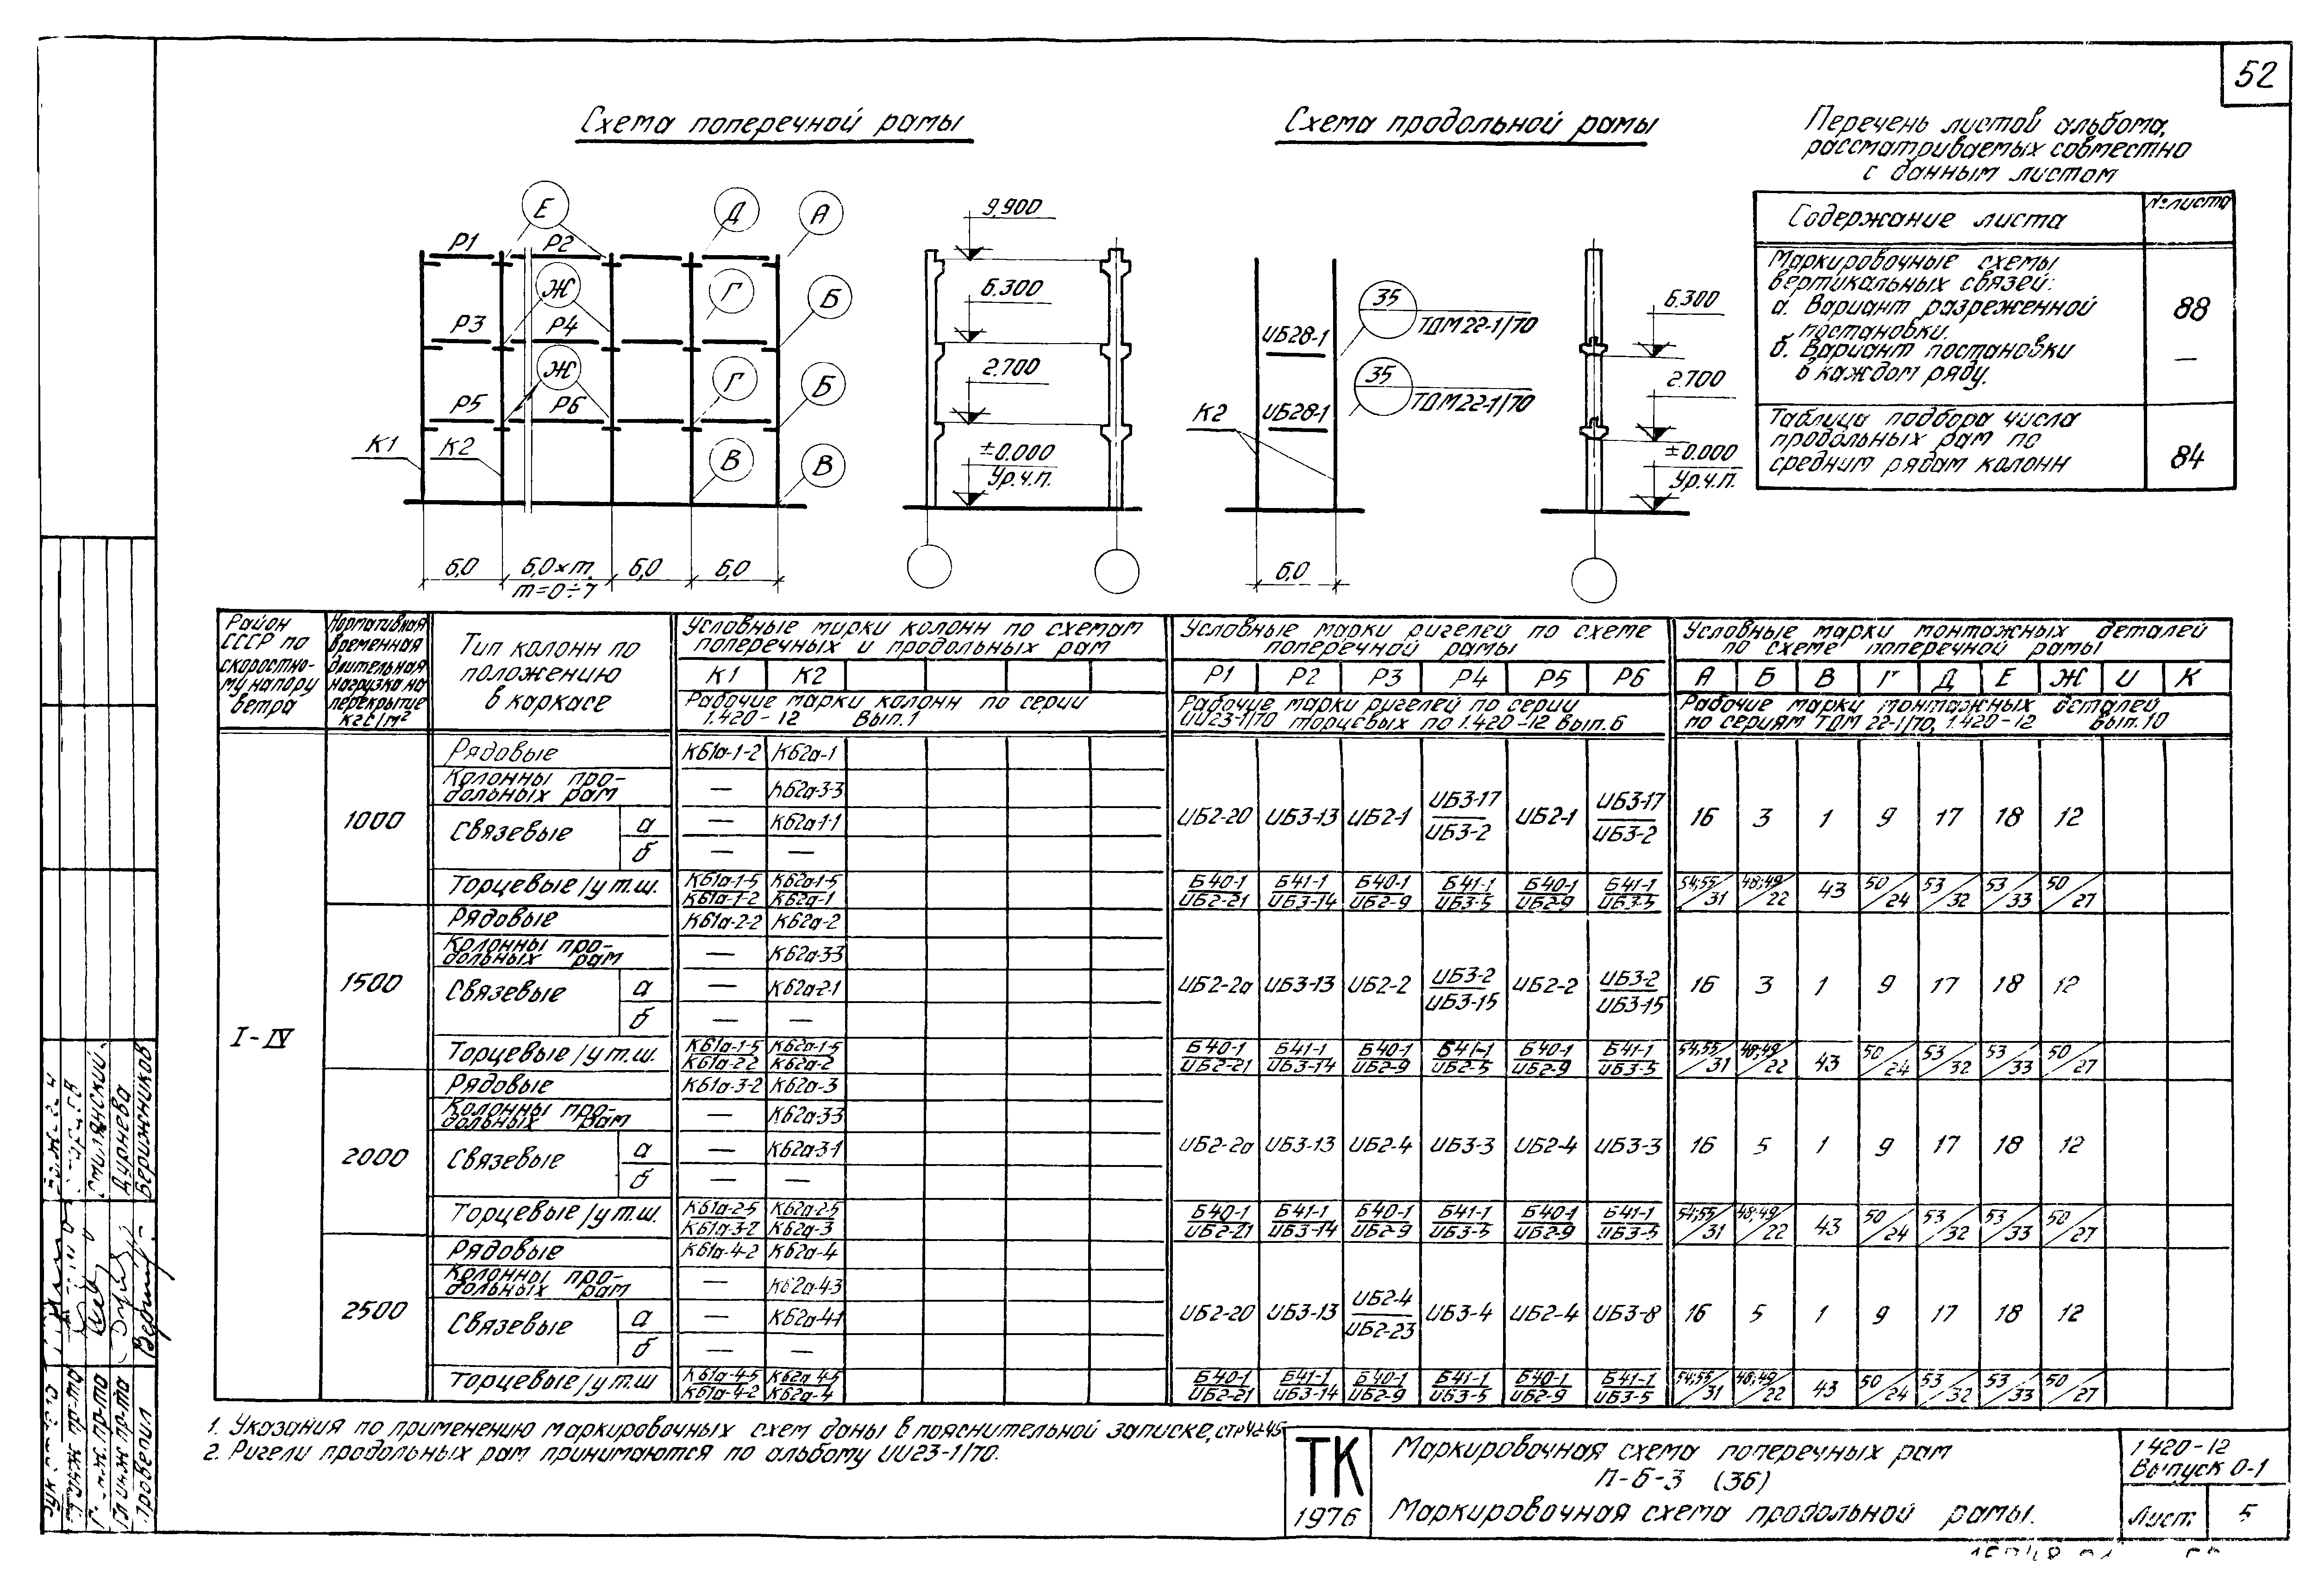 52
Схема поперечной рамы
Схема продольной рамы
Перечень листов альбома,
рассматриваемых совместно
с данным листом
Содержание листа
№ листа
Маркировочные схемы
вертикальных связей:
а. Вариант разреженной
постановки.
88
б. Вариант постановки
в каждом ряду.
—
Таблица подбора числа
продольных рам по
средним рядам колонн
84
Е
Д
А
Р1
Р2
Ж
Г
Б
Р3
Р4
Ж
Г
Б
Р5
Р6
К1
К2
В
В
6,0
6,0×m
6,0
6,0
m=0÷7
9,900
6.300
2.700
±0.000
Ур.ч.п.
ИБ28-1
35
ТДМ22-1/70
ИБ28-1
35
ТДМ22-1/70
К2
6,0
6.300
2.700
±0.000
Ур.ч.п.
Район СССР по скоростному напору ветра
Нормативная временная длительная нагрузка на перекрытие кгс/м²
Тип колонн по положению в каркасе
Условные марки колонн по схемам поперечных и продольных рам
Условные марки ригелей по схеме поперечной рамы
Условные марки монтажных деталей по схеме поперечной рамы
К1 К2
Р1 Р2 Р3 Р4 Р5 Р6
А Б В Г Д Е Ж И К
Рабочие марки колонн по серии 1.420-12 Вып.1
Рабочие марки ригелей по серии ИИ23-1/70 торцевых по 1.420-12 вып.6
Рабочие марки монтажных деталей по сериям ТДМ 22-1/70, 1.420-12 вып.10
I-IV
1000
Рядовые К61а-1-2 К62а-1
Колонны продольных рам — К62а-3-3
Связевые а — К62а-1-1
б — —
ИБ2-20 ИБ3-13 ИБ2-1 ИБ3-17/ИБ3-2 ИБ2-1 ИБ3-17/ИБ3-2 16 3 1 9 17 18 12
Торцевые/у т.ш. К61а-1-5/К61а-1-2 К62а-1-5/К62а-1 Б40-1/ИБ2-21 Б41-1/ИБ3-14 Б40-1/ИБ2-9 Б41-1/ИБ3-5 Б40-1/ИБ2-9 Б41-1/ИБ3-5 54;55/31 48;49/22 43 50/24 53/32 53/33 50/27
1500
Рядовые К61а-2-2 К62а-2
Колонны продольных рам — К62а-3-3
Связевые а — К62а-2-1
б — —
ИБ2-20 ИБ3-13 ИБ2-2 ИБ3-2/ИБ3-15 ИБ2-2 ИБ3-2/ИБ3-15 16 3 1 9 17 18 12
Торцевые/у т.ш. К61а-1-5/К61а-2-2 К62а-1-5/К62а-2 Б40-1/ИБ2-21 Б41-1/ИБ3-14 Б40-1/ИБ2-9 Б41-1/ИБ2-5 Б40-1/ИБ2-9 Б41-1/ИБ3-5 54;55/31 48;49/22 43 50/24 53/32 53/33 50/27
2000
Рядовые К61а-3-2 К62а-3
Колонны продольных рам — К62а-3-3
Связевые а — К62а-3-1
б — —
ИБ2-20 ИБ3-13 ИБ2-4 ИБ3-3 ИБ2-4 ИБ3-3 16 5 1 9 17 18 12
Торцевые/у т.ш. К61а-2-5/К61а-3-2 К62а-2-5/К62а-3 Б40-1/ИБ2-21 Б41-1/ИБ3-14 Б40-1/ИБ2-9 Б41-1/ИБ3-5 Б40-1/ИБ2-9 Б41-1/ИБ3-5 54;55/31 48;49/22 43 50/24 53/32 53/33 50/27
2500
Рядовые К61а-4-2 К62а-4
Колонны продольных рам — К62а-4-3
Связевые а — К62а-4-1
б — —
ИБ2-20 ИБ3-13 ИБ2-4/ИБ2-23 ИБ3-4 ИБ2-4 ИБ3-8 16 5 1 9 17 18 12
Торцевые/у т.ш К61а-4-5/К61а-4-2 К62а-4-5/К62а-4 Б40-1/ИБ2-21 Б41-1/ИБ3-14 Б40-1/ИБ2-9 Б41-1/ИБ3-5 Б40-1/ИБ2-9 Б41-1/ИБ3-5 54;55/31 48;49/22 43 50/24 53/32 53/33 50/27
1. Указания по применению маркировочных схем даны в пояснительной записке,
2. Ригели продольных рам принимаются по альбому ИИ23-1/70.
ТК
1976
Маркировочная схема поперечных рам
П-6-3 (36)
Маркировочная схема продольной рамы.
1.420-12
Выпуск 0-1
Лист 5
Смилянский
Дурнева
Бережников
Проверил